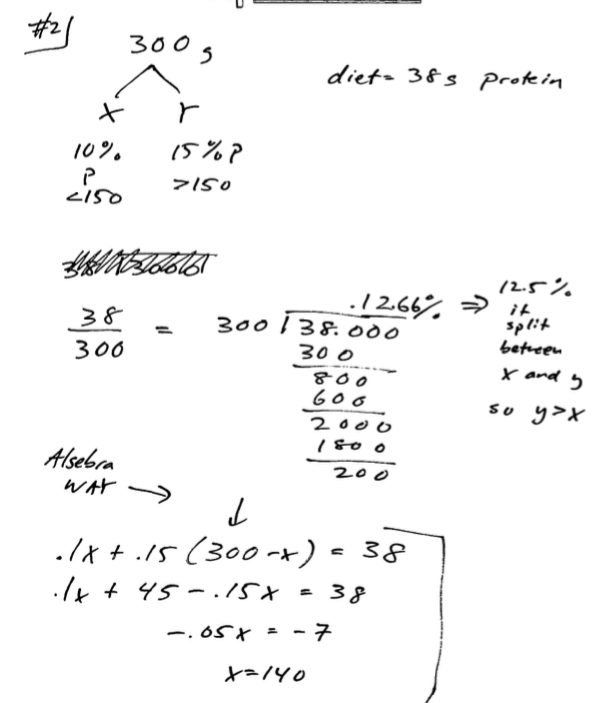 #2
300 g
diet = 38 g Protein
X Y
10% 15% P
P
<150 >150
38/300 = 300 | 38.000
.1266%
⇒ 12.5%
if
split
between
x and y
so y>x
300
800
600
2000
1800
200
Algebra
WAY →
↓
.1x + .15 (300-x) = 38
.1x + 45 - .15x = 38
-.05x = -7
x=140